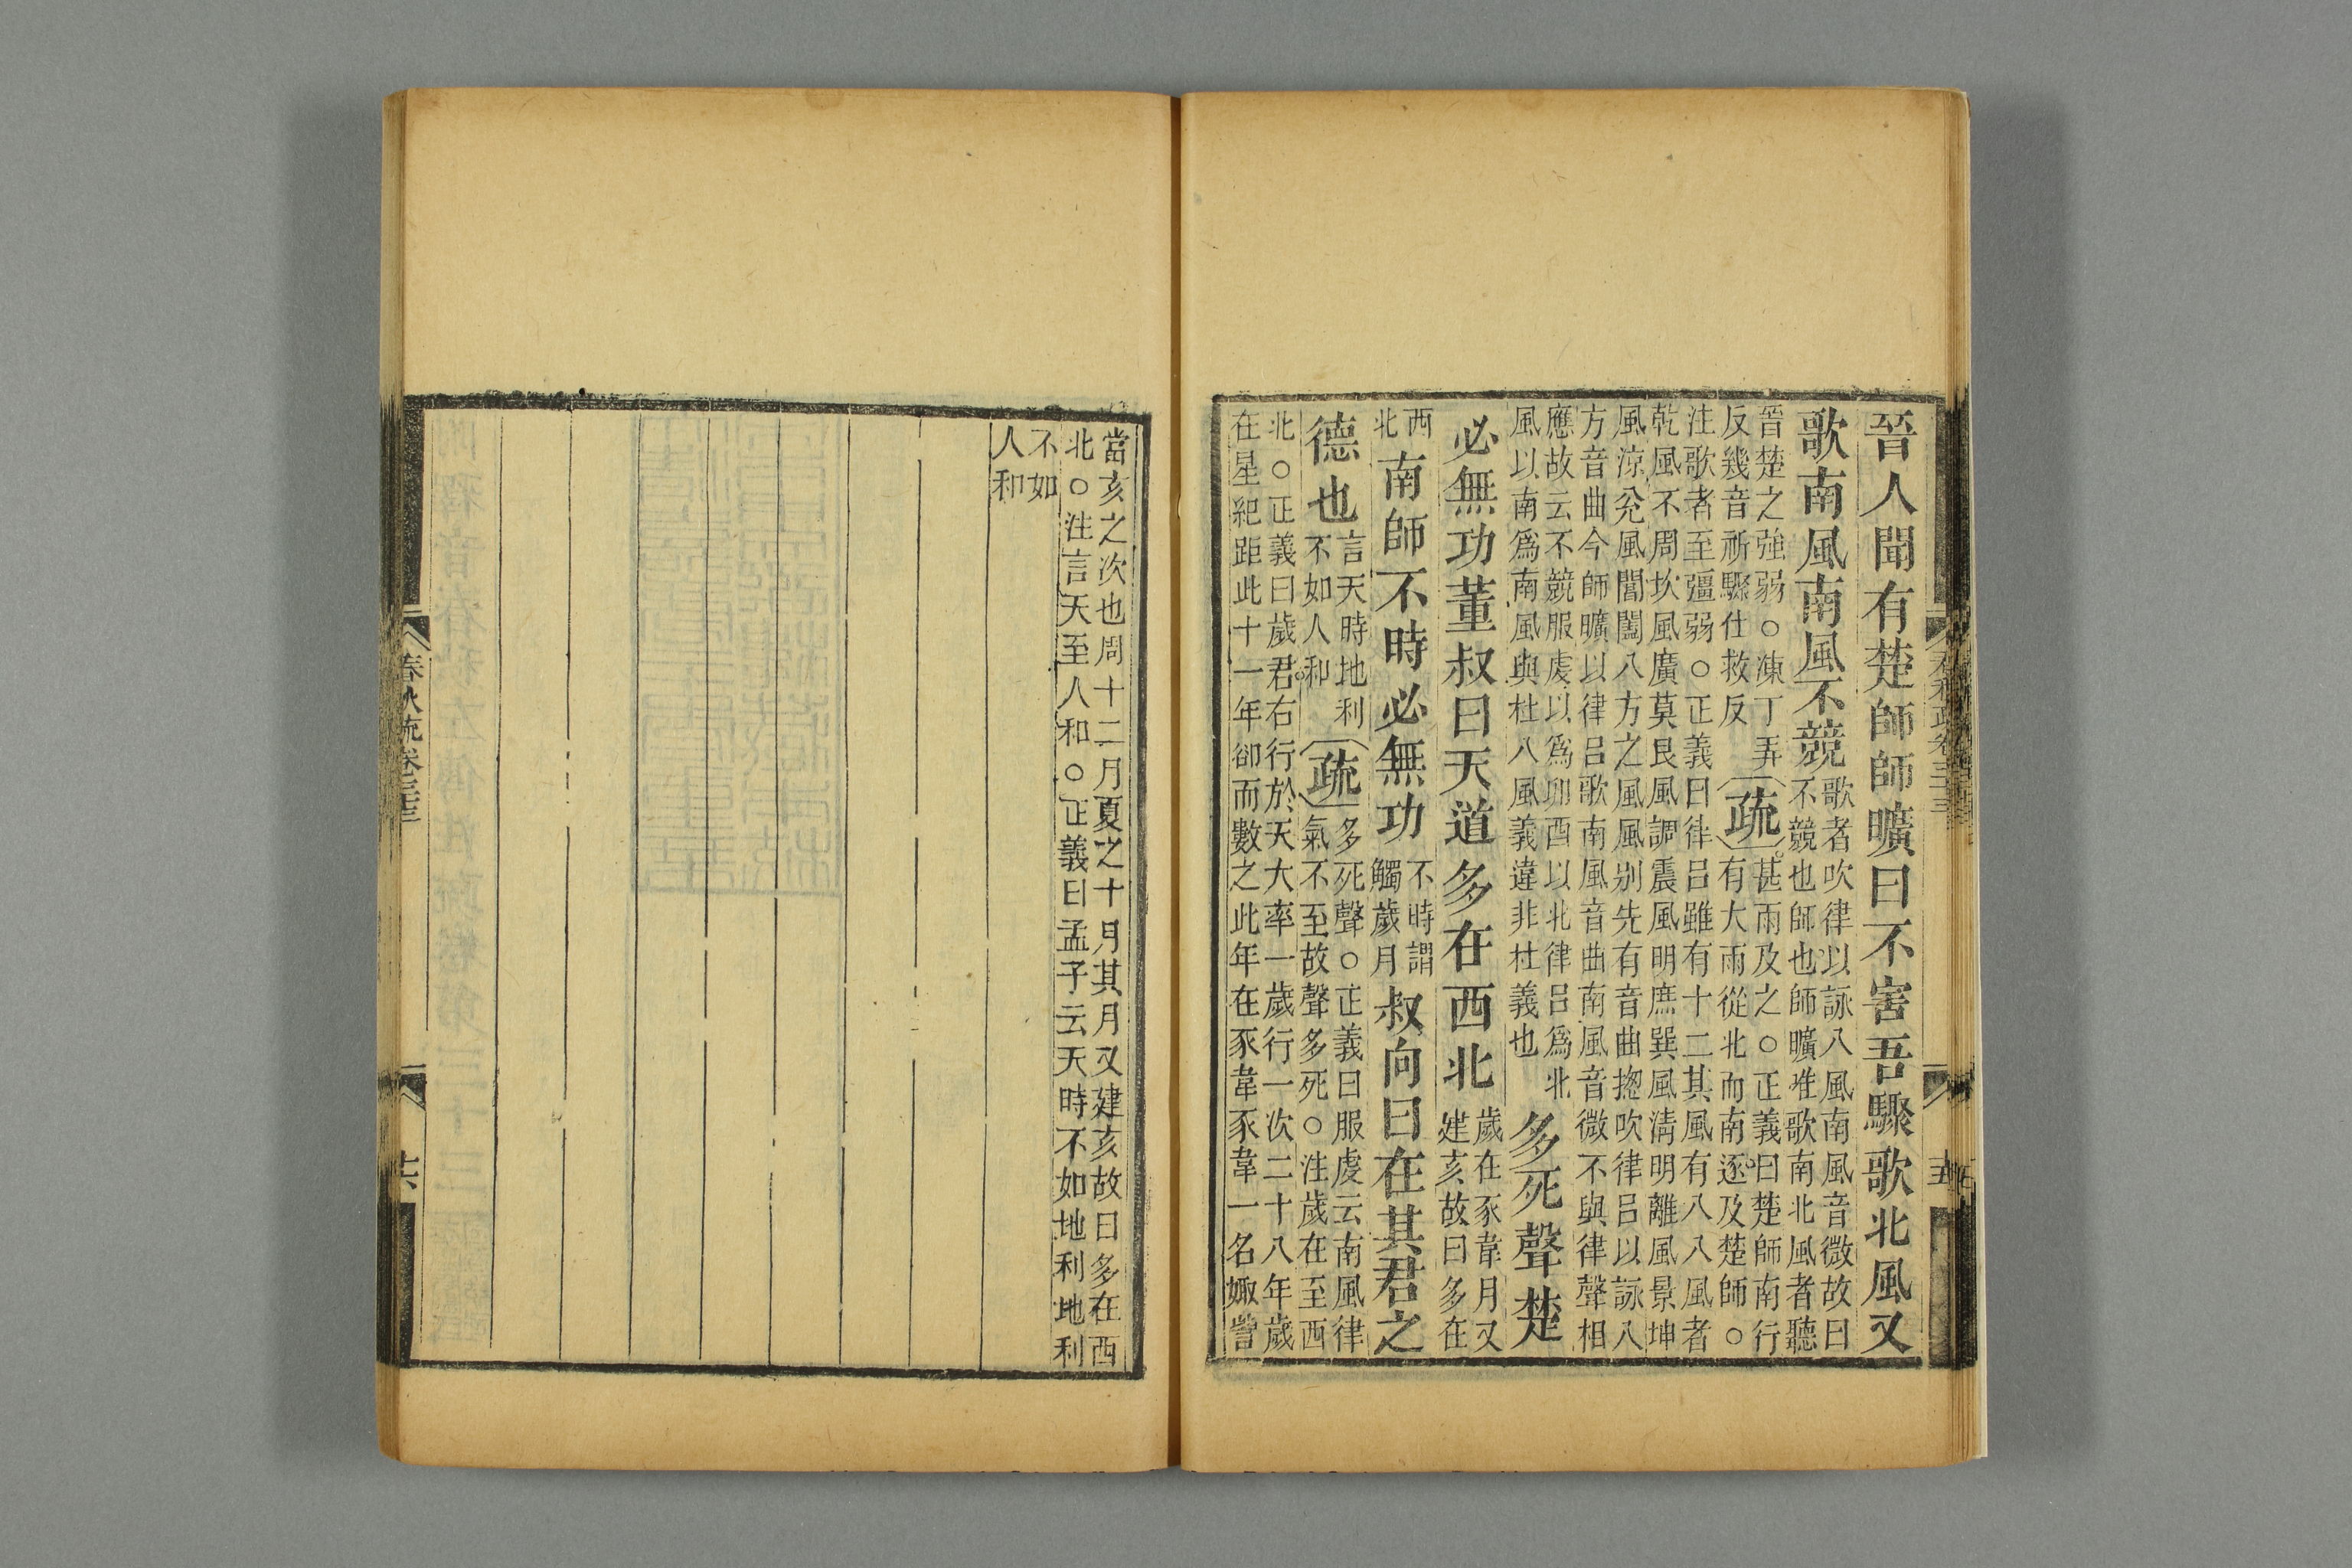 晉人聞有楚師師曠曰不害吾驟歌北風又
歌南風南風不競
歌者吹律以詠八風南風音微故曰
不競也師也師曠唯歌南北風者聽
晉楚之強弱○涷丁弄
反幾音祈驟仕救反
疏
甚雨及之○正義曰楚師南行
有大雨從北而南逐及楚師○
注歌者至彊弱○正義曰律呂雖有十二其風有八八風者
乾風不周坎風廣莫艮風調震風明庶巽風清明離風景坤
風涼兊風閶闔八方之風風别先有音曲揔吹律呂以詠八
方音曲今師曠以律呂歌南風音曲南風音微不與律聲相
應故云不競服虔以爲卯酉以北律呂爲北
風以南爲南風與杜八風義違非杜義也
多死聲楚
必無功董叔曰天道多在西北
歲在豕韋月又
建亥故曰多在
西
北
南師不時必無功
不時謂
觸歲月
叔向曰在其君之
德也
言天時地利
不如人和
疏
多死聲○正義曰服虔云南風律
氣不至故聲多死○注歲在至西
北○正義曰歲君右行於天大率一歲行一次二十八年歲
在星紀距此十一年卻而數之此年在豕韋豕韋一名娵訾
當亥之次也周十二月夏之十月其月又建亥故曰多在西
北○注言天至人和○正義曰孟子云天時不如地利地利
不如
人和
春秋疏卷三十三